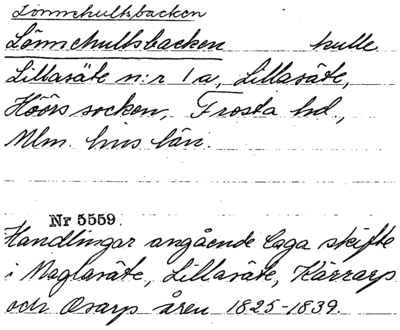 Lönnehultsbacken
Lönnehultsbacken kulle
Lillasäte n:r 1a, Lillasäte,
Höörs socken, Frosta hd.,
Mlm. hus län.
Nr 5559.
Handlingar angående Laga skifte
i Maglasäte, Lillasäte, Kärrarp
och Osarp åren 1825-1839.